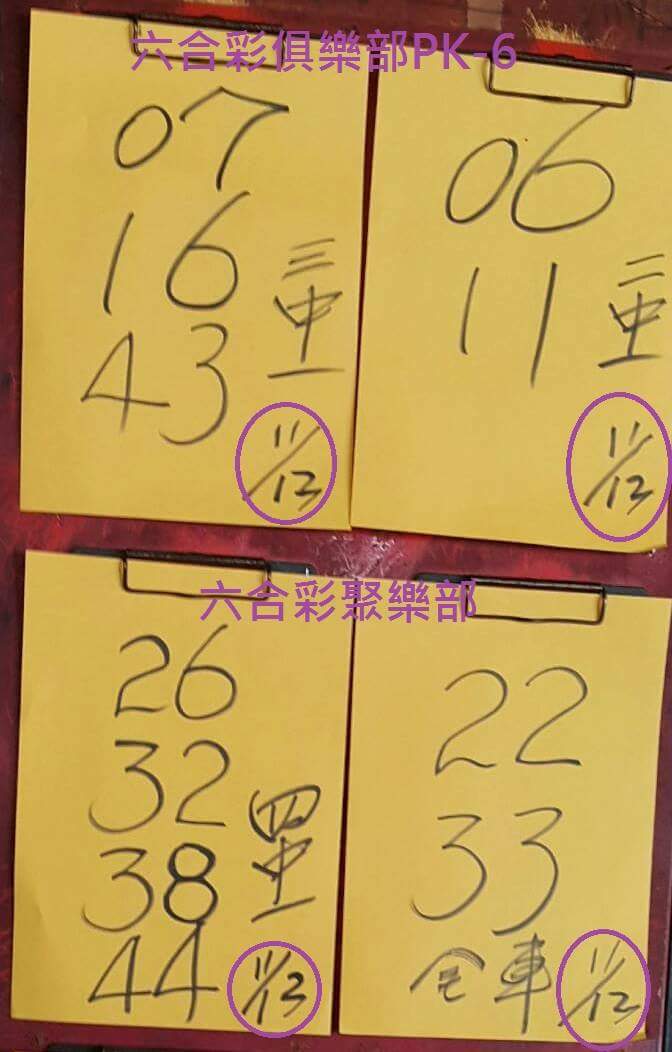 六合彩俱樂部PK-6
07
16
43
三中一
11/12
06
11
二中一
11/12
六合彩聚樂部
26
32
38
44
四中一
11/12
22
33
全車
11/12